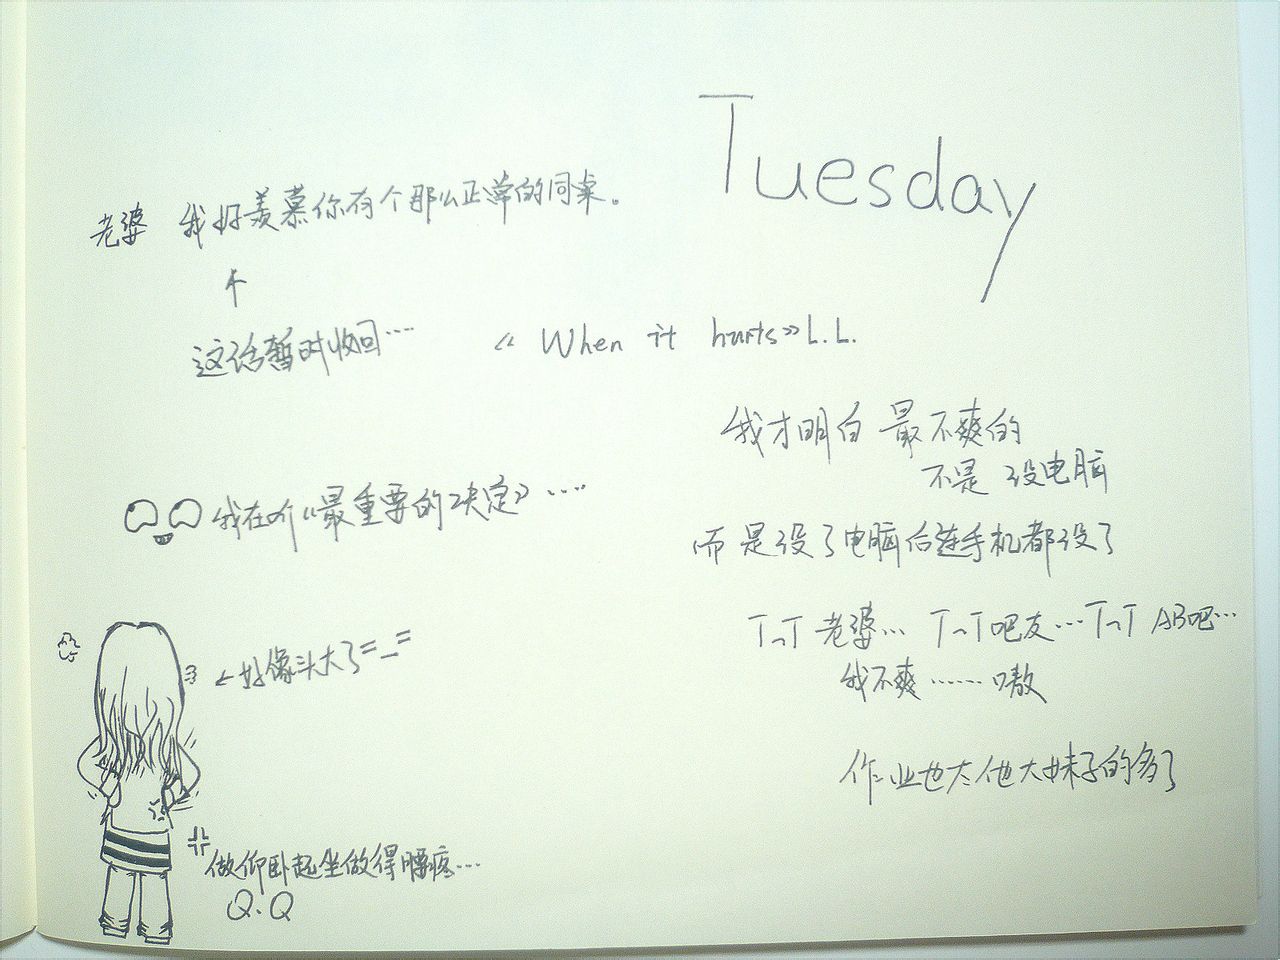 Tuesday
老婆 我好羡慕你有个那么正常的同桌。
↑
这话暂时收回····
《When it hurts》L.L.
我才明白 最不爽的
不是 没电脑
我在听《最重要的决定》····
而是没了电脑后连手机都没了
T~T 老婆... T~T吧友...T~T AB吧...
我不爽······嗷
←好像头大了=_=
作业也太他大妹子的多了
做仰卧起坐做得腰疼...
Q.Q